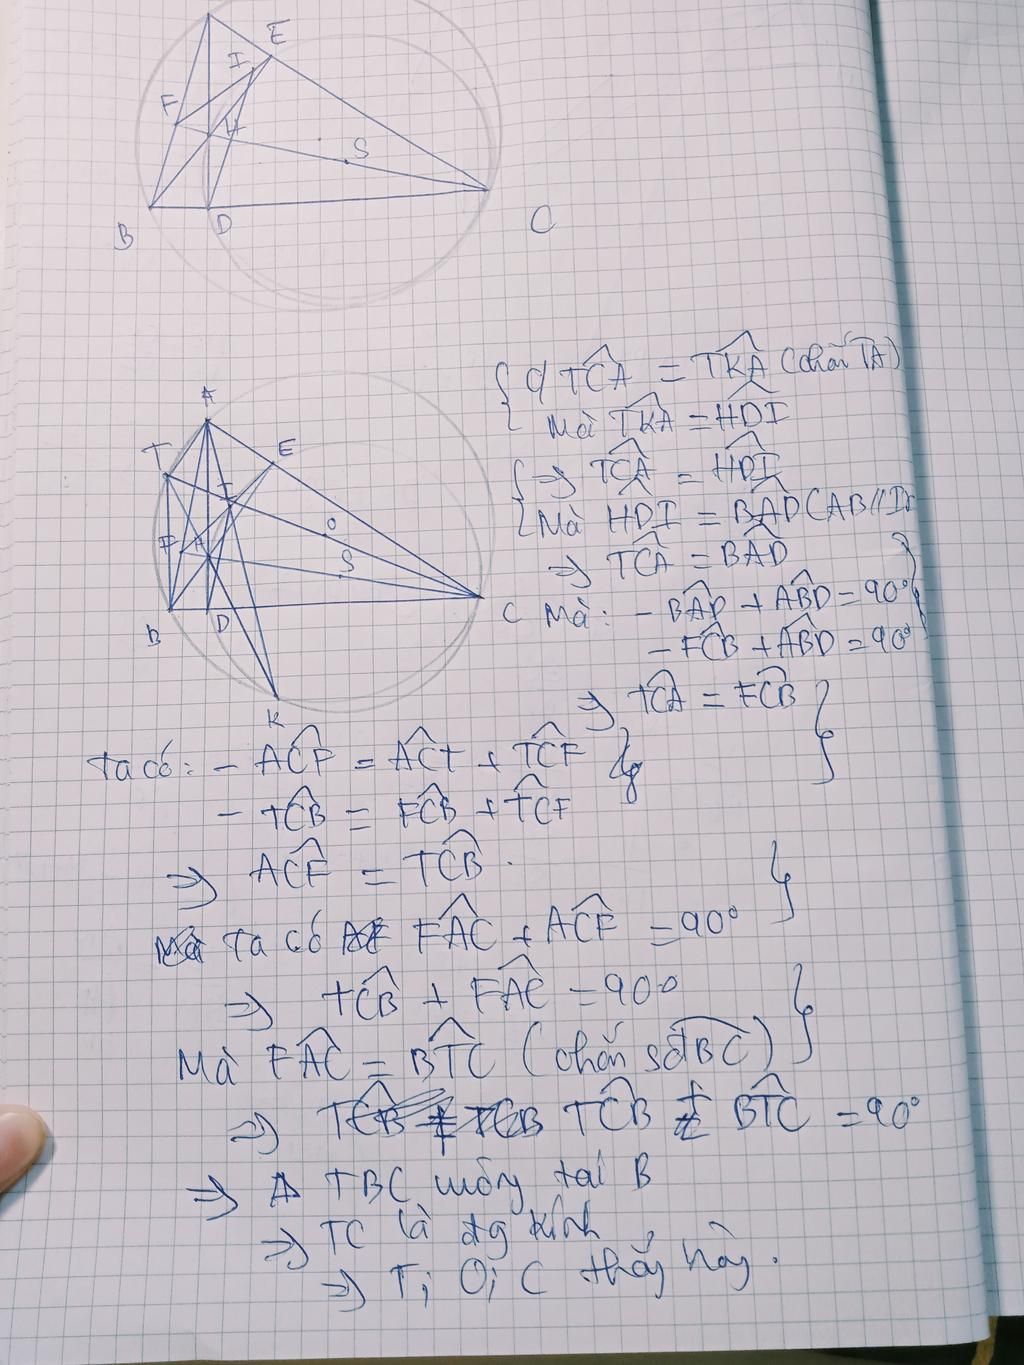 E
I
F
H
S
B
D
C
A
T
E
I
O
F
H
S
B
D
C
K
c/ TCA = TKA (chắn TA)
Mà TKA = HDI
=> TCA = HDI
Mà HDI = BAD (AB//ID
=> TCA = BAD
Mà: - BAD + ABD = 90°
- FCB + ABD = 90°
=> TCA = FCB
Ta có: - ACF = ACT + TCF
- TCB = FCB + TCF
=> ACF = TCB.
Ta có FAC + ACF = 90°
=> TCB + FAC = 90°
Mà FAC = BTC (chắn sđ BC)
=> TCB + BTC = 90°
=> Δ TBC vuông tại B
=> TC là đg kính
=> T; O; C thẳng hàng.